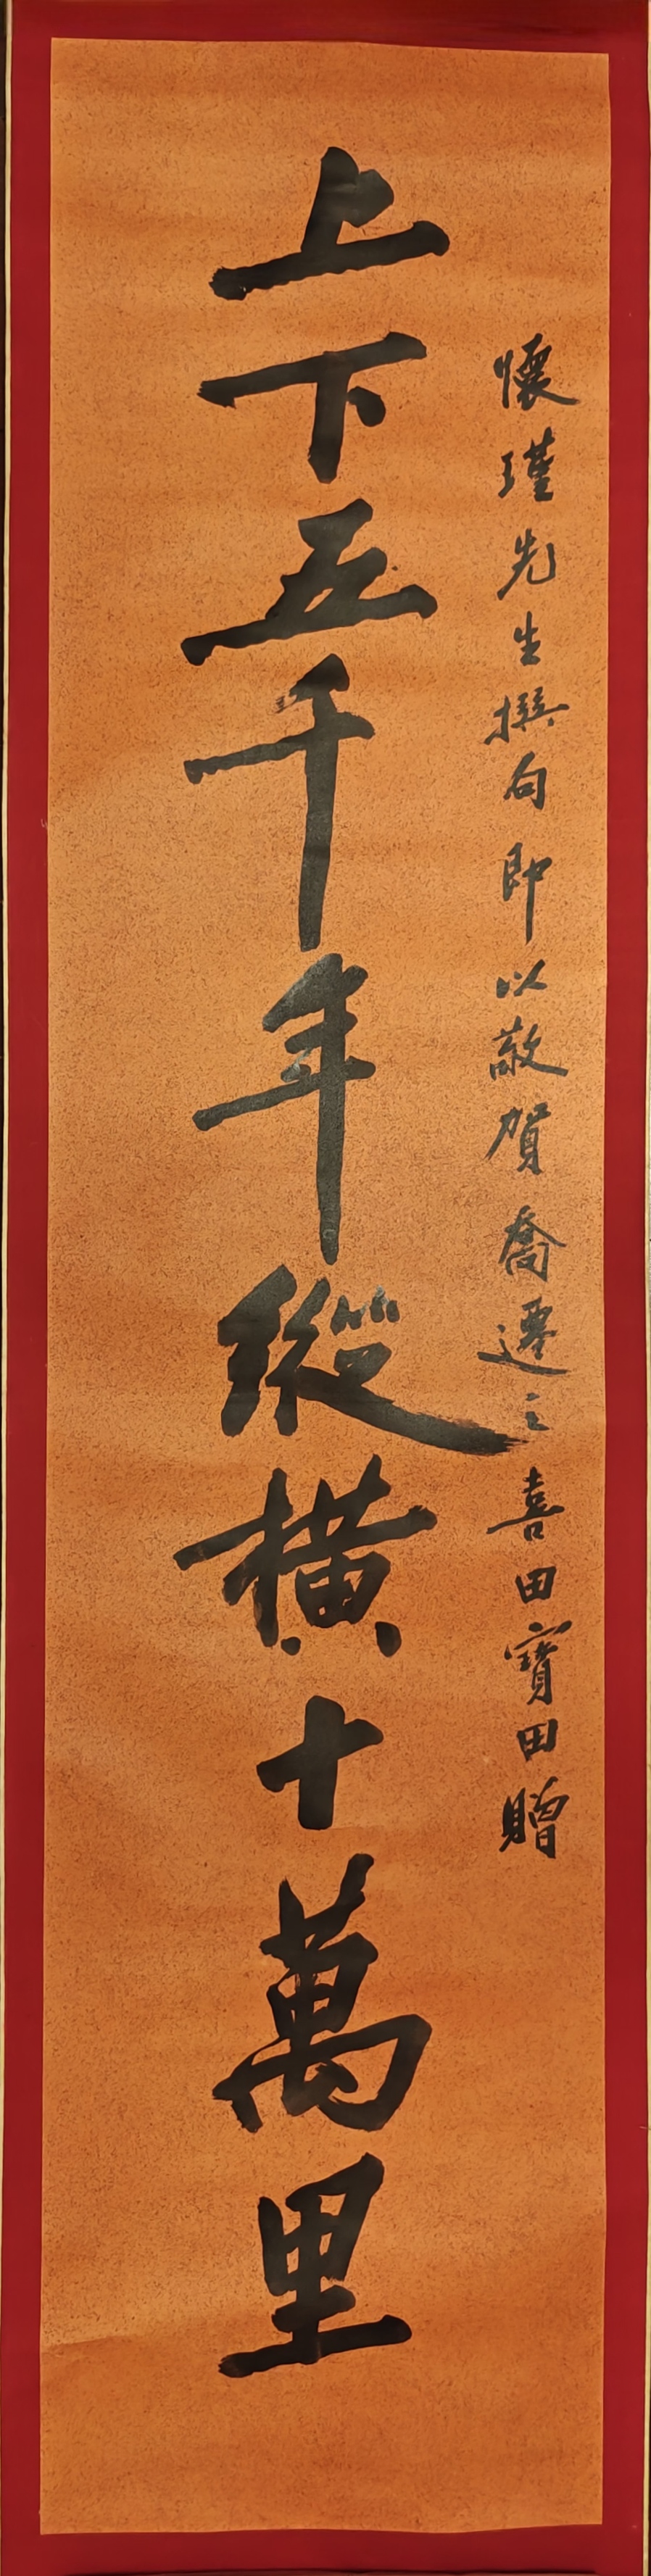 懷瑾先生撰句即以敬賀喬遷之喜田寶田贈
上下五千年縱橫十萬里